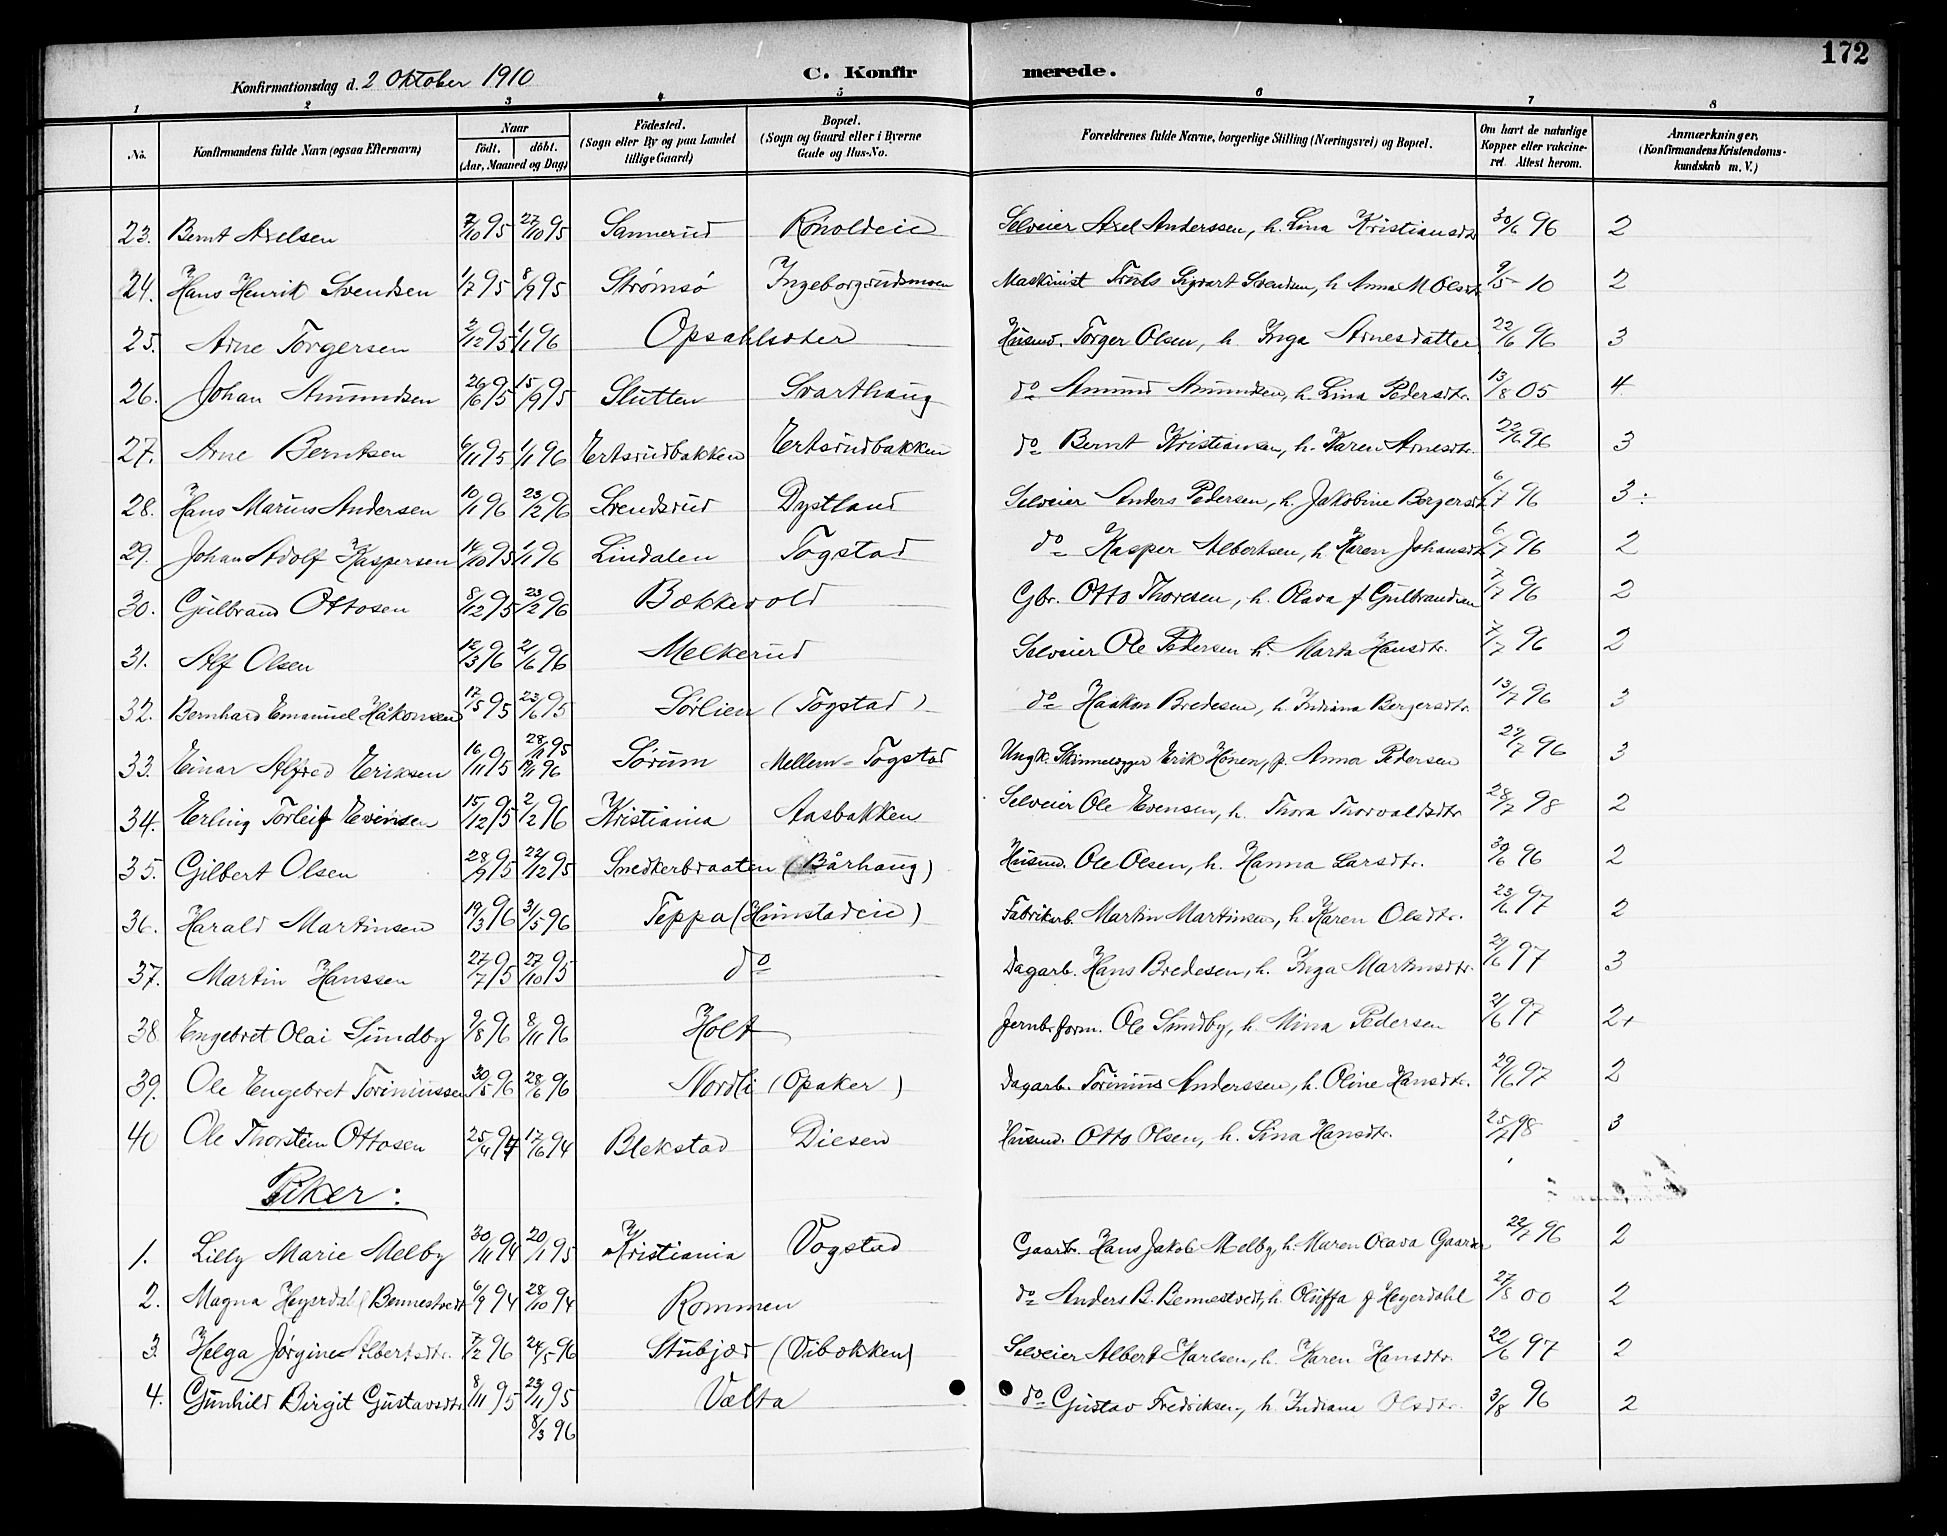 172
Konfirmationsdag d. 2 Oktober 1910 C. Konfirmerede.
1 2 3 4 5 6 7 8
No. Konfirmandens fulde Navn (ogsaa Efternavn) Naar født. døbt. (Aar, Maaned og Dag) Fødested. (Sogn eller By og paa Landet tillige Gaard) Bopæl. (Sogn og Gaard eller i Byerne Gade og Hus-No. Forældrenes fulde Navne, borgerlige Stilling (Næringsvei) og Bopæl. Om havt de naturlige Kopper eller vakcineret. Attest herom. Anmærkninger. (Konfirmandens Kristendomskundskab m. V.)
23. Bernt Axelsen 7/10 95 27/10 95 Sannerud Rønoldeie Selveier Axel Anderssen, h. Lina Kristiansdtr 30/6 96 2
24. Hans Henrik Svendsen 1/7 95 8/9 95 Strømsø Ingeborgrudsmoen Maskinist Truls Sigvart Svendsen, h. Anna M Olsdtr 9/5 10 2
25. Arne Torgersen 2/12 95 1/1 96 Opsahlsæter Husmd. Torger Olsen, h. Inga Arnesdatter 22/6 96 3
26. Johan Amundsen 26/6 95 15/9 95 Slutten Svarthaug do Amund Amundsen, h. Lina Pedersdtr. 13/8 05 4
27. Arne Berntsen 6/11 95 1/1 96 Ertsrudbakken Ertsrudbakken do Bernt Kristiansen, h. Karen Arnesdtr. 22/6 96 3
28. Hans Marius Andersen 10/1 96 23/2 96 Svendsrud Dystland Selveier Anders Pedersen, h. Jakobine Borgersdtr 6/7 96 3÷
29. Johan Adolf Kaspersen 14/10 95 1/1 96 Lindalen Togstad do Kasper Albertsen, h. Karen Johansdtr 6/7 96 2
30. Gulbrand Ottosen 8/12 95 23/2 96 Bækkevold Gbr. Otto Thoresen, h. Olava f Gulbrandsen 7/7 96 2
31. Alf Olsen 12/3 96 21/6 96 Melkerud Selveier Ole Pedersen h. Marta Hansdtr. 7/7 96 2
32. Bernhard Emanuel Håkonsen 17/5 95 23/6 95 Sørlien (Togstad) do Haakon Bredesen, h. Indiana Borgersdtr. 13/7 96 3
33. Einar Alfred Eriksen 16/11 95 28/11 95 19/1 96 Sørum Mellem-Togstad Ungk. Skinnelægger Erik Hønen, p. Anna Pedersen 22/7 96 3
34. Erling Torleif Evensen 15/12 95 2/2 96 Kristiania Aasbakken Selveier Ole Evensen, h. Thora Thorvaldsdtr 28/7 98 2
35. Gilbert Olsen 28/9 95 22/12 95 Snedkerbraaten (Bårhaug) Husmd. Ole Olsen, h. Hanna Larsdtr. 30/6 96 2
36. Harald Martinsen 19/3 96 31/5 96 Teppa (Hunstadeie) Fabrikarb. Martin Martinsen, h. Karen Olsdtr. 23/6 97 2
37. Martin Hanssen 27/7 95 27/10 95 do Dagarb. Hans Bredesen, h. Inga Martinsdtr. 29/6 97 3
38 Engebret Olai Sundby 9/8 96 8/11 96 Holt Jernb.form. Ole Sundby, h. Mina Pedersen 21/6 97 2+
39. Ole Engebret Toriniussen 30/5 96 28/6 96 Nordli (Opaker) Dagarb. Torinius Anderssen, h. Oline Hansdtr. 29/6 97 2
40 Ole Thorstein Ottosen 25/4 94 17/6 94 Blekstad Diesen Husmd. Otto Olsen, h. Lina Hansdtr. 25/7 98 3
Piker:
1. Lilly Marie Melby 30/11 94 20/1 95 Kristiania Vogstad Gaardbr. Hans Jakob Melby, h. Maren Olava Gaarder 22/7 96 2
2. Magna Heyerdal (Bennestvedt 6/9 94 28/10 94 Rommen do Anders B. Bennestvedt, h. Oluffa f Heyerdahl 27/8 00 2
3. Helga Jørgine Albertsdtr. 7/2 96 24/5 96 Stubjød (Vibækken) Selveier Albert Karlsen, h. Karen Hansdtr. 22/6 97 2
4. Gunhild Birgit Gustavsdtr 8/11 95 23/11 95 8/3 96 Vælta do Gustav Fredriksen, h. Indiana Olsdtr. 3/8 96 2